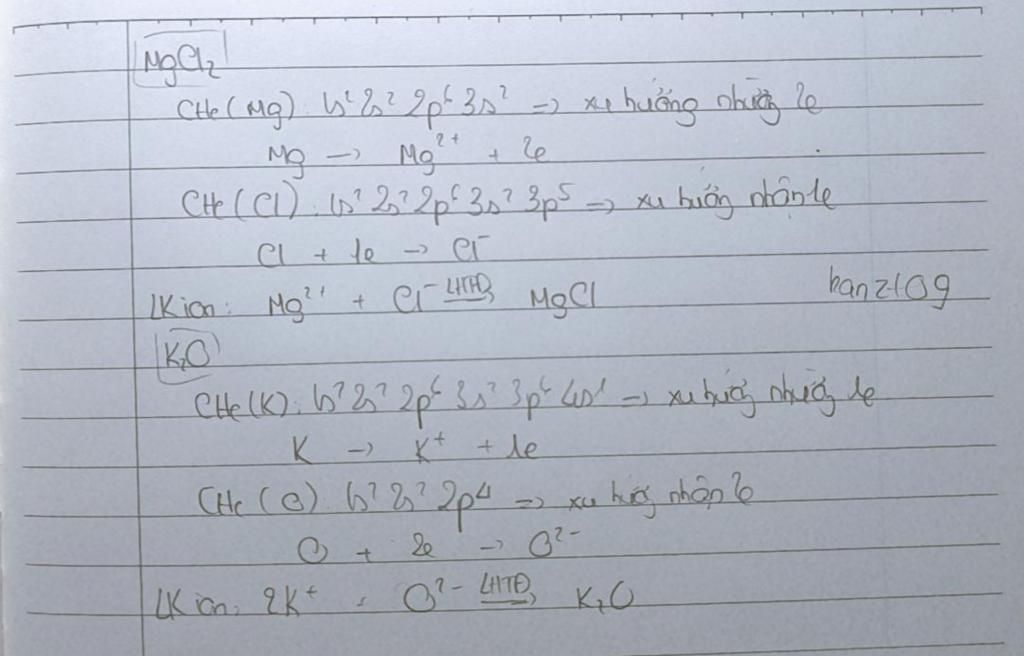 MgCl₂
CHe (Mg): 1s² 2s² 2p⁶ 3s² => xu hướng nhường 2e
Mg -> Mg²⁺ + 2e
CHe (Cl): 1s² 2s² 2p⁶ 3s² 3p⁵ => xu hướng nhận 1e
Cl + 1e -> Cl⁻
LK ion: Mg²⁺ + Cl⁻ LHTĐ-> MgCl
K₂O
CHe (K): 1s² 2s² 2p⁶ 3s² 3p⁶ 4s¹ => xu hướng nhường 1e
K -> K⁺ + 1e
CHe (O): 1s² 2s² 2p⁴ => xu hướng nhận 2e
O + 2e -> O²⁻
LK ion: 2K⁺ + O²⁻ LHTĐ-> K₂O